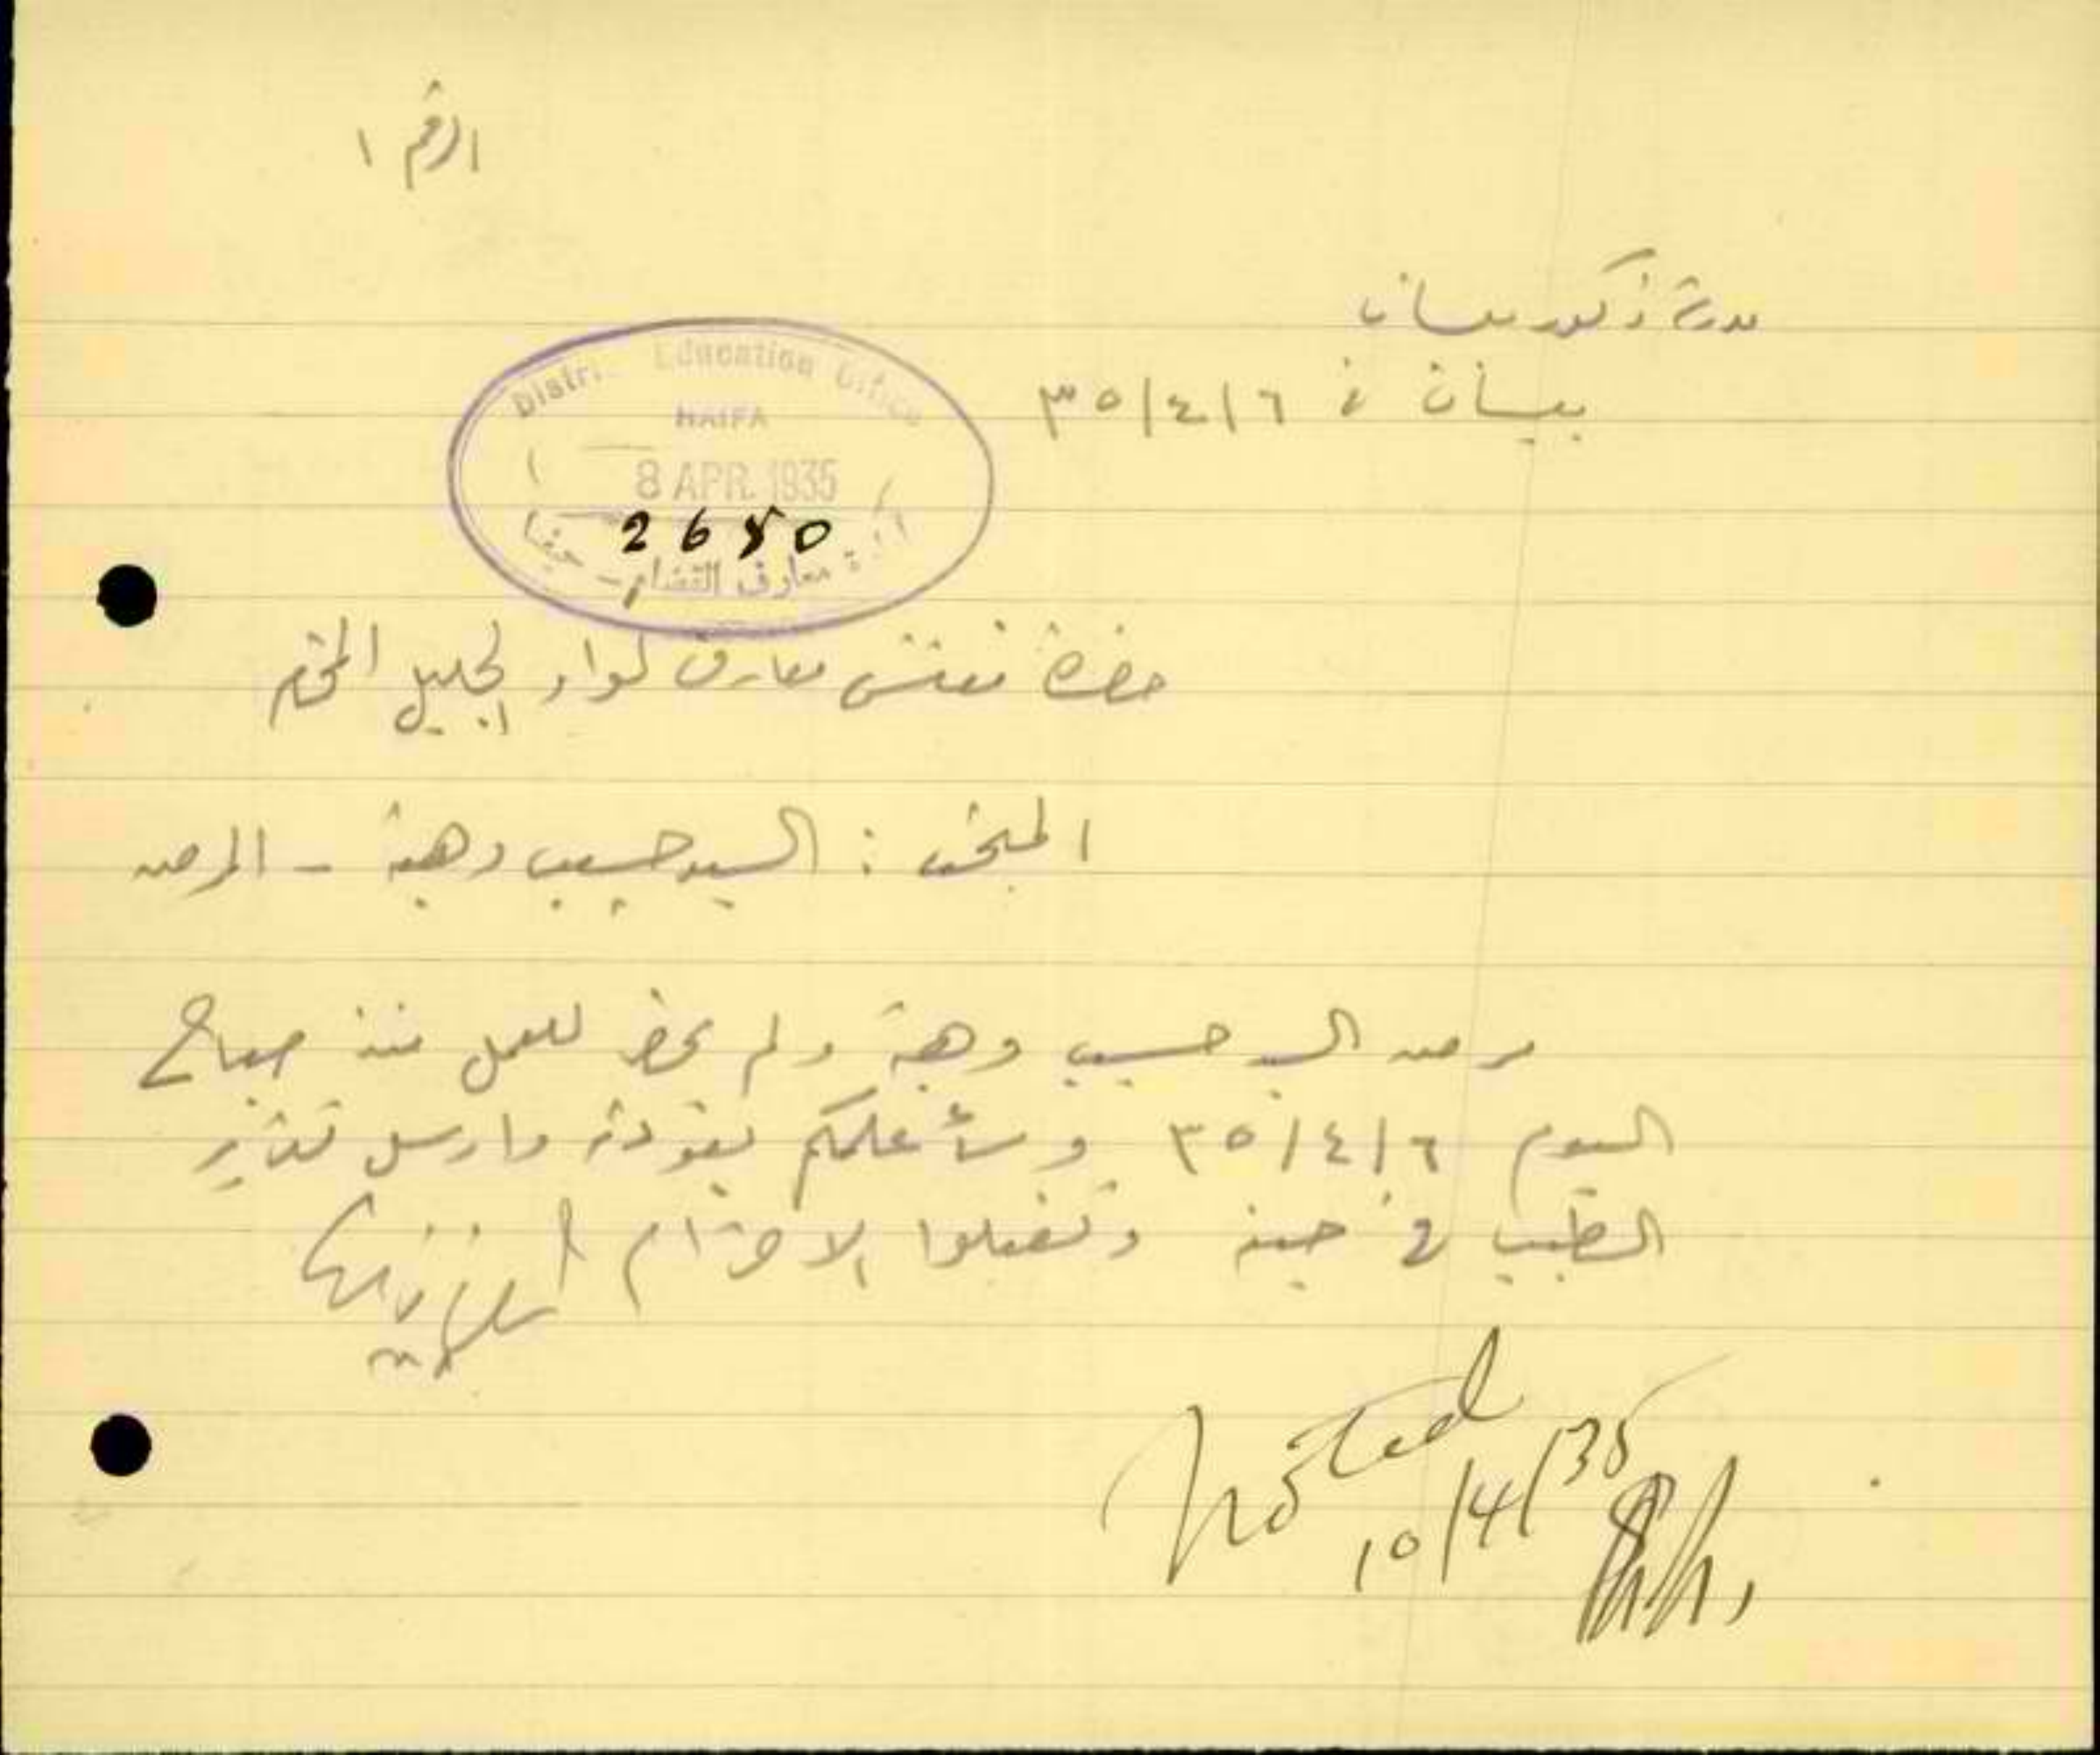 الرقم ١
مدرسة ذكور بيسان
بيسان في ٦/٤/٣٥
Education Office
HAIFA
8 APR. 1935
2680
معارف القضاء - حيفا
حضرة مفتش معارف لواء الجليل المحترم
المبحث : السيد حسيب وهبة - المرض
مرض السيد حسيب وهبة ولم يحضر للعمل منذ صباح
اليوم ٦/٤/٣٥ وسأعلمكم بعودته وارسل تقرير
الطبيب في حينه وتفضلوا الاحترام
Noted
10/4/35